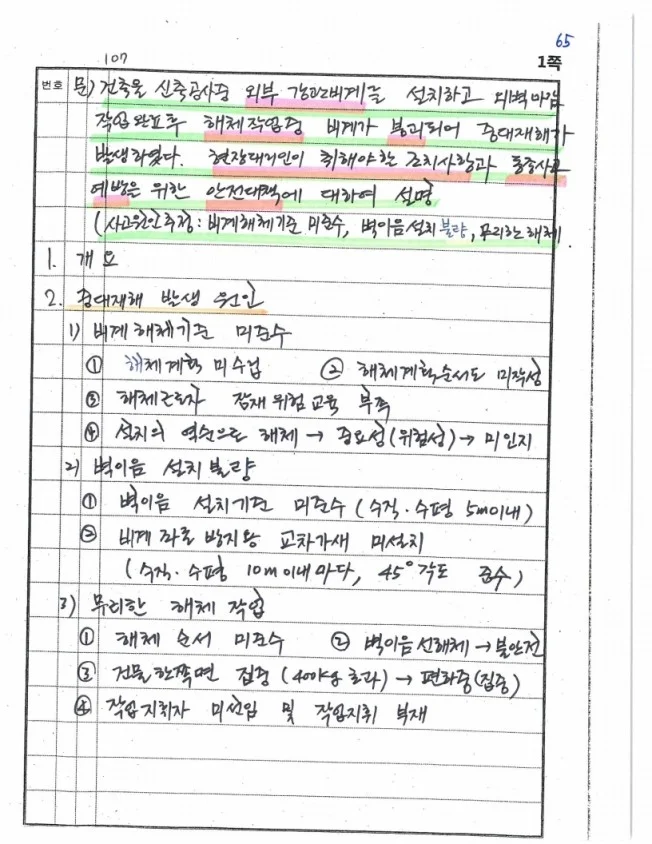 65
107
1쪽
번호
문) 건축물 신축공사중 외부 강관비계를 설치하고 외벽마감
작업 완료후 해체작업중 비계가 붕괴되어 중대재해가
발생하였다. 현장대리인이 취해야 할 조치사항과 동종사고
예방을 위한 안전대책에 대하여 설명
(사고원인추정: 비계해체기준 미준수, 벽이음설치불량, 무리한 해체
1. 개요
2. 중대재해 발생 원인
1) 비계해체기준 미준수
① 해체계획 미수립 ② 해체계획순서도 미작성
③ 해체근로자 잠재위험교육 부족
④ 설치의 역순으로 해체 → 중요성(위험성) → 미인지
2) 벽이음 설치불량
① 벽이음 설치기준 미준수 (수직·수평 5m이내)
② 비계 좌굴방지용 교차가새 미설치
(수직·수평 10m이내마다, 45° 각도 준수)
3) 무리한 해체 작업
① 해체 순서 미준수 ② 벽이음선해체 → 불안전
③ 건물한쪽면 집중 (400kg 초과) → 편하중(집중)
④ 작업지휘자 미선임 및 작업지휘 부재